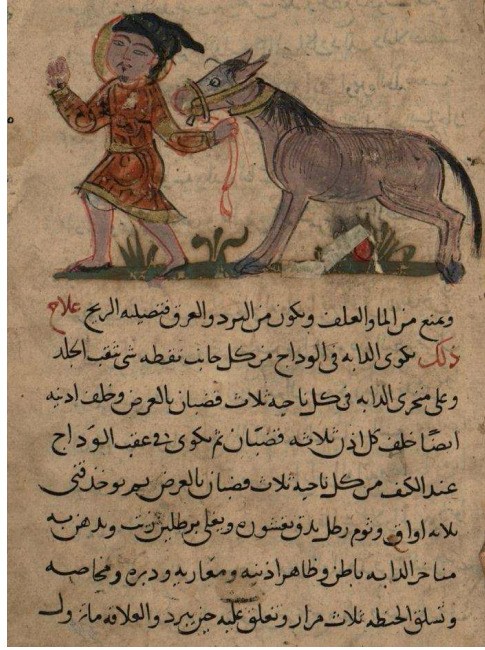 ويمنع من الما والعلف ويكون من البرد والعرق فتصيبه الريح علاج
ذلك يكوى الدابه في الوداج من كل جانب نقطه شى تنقب الجلد
وعلى منخرى الدابه في كل ناحيه ثلاث قضبان بالعرض وخلف اذنيه
ايضا خلف كل اذن ثلاثه قضبان ثم يكوى في عقب الوداج
عند الكف من كل ناحيه ثلاث قضبان بالعرض ثم يوخذ
ثلاثه اواق وثوم رطل يدق بقشوره ويغلى برطلين زيت ويدهن به
مناخر الدابه باطن وظاهر اذنيه ومغاربه ودبره
وتسلق الحنطه ثلاث مرار وتعلق عليه حين يبرد والعلافه